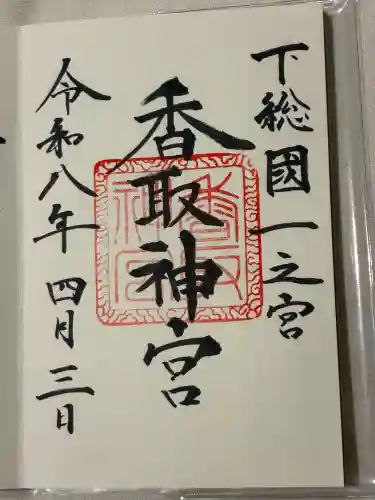 下総國一之宮
香取神宮
令和八年四月三日